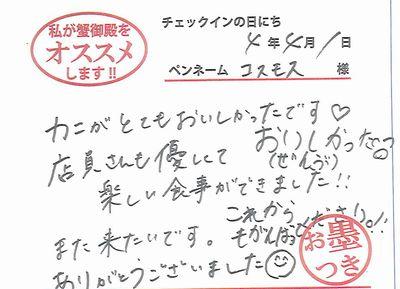 私が蟹御殿を
オススメ
します!!
チェックインの日にち
4年4月1日
ペンネーム コスモス 様
カニがとてもおいしかったです♡
店員さんも優しくて おいしかったっ
(ぜんぶ)
楽しい食事ができました!!
これから
また来たいです。もがんばってくださいっ!!
ありがとうございました☺
お墨
つき